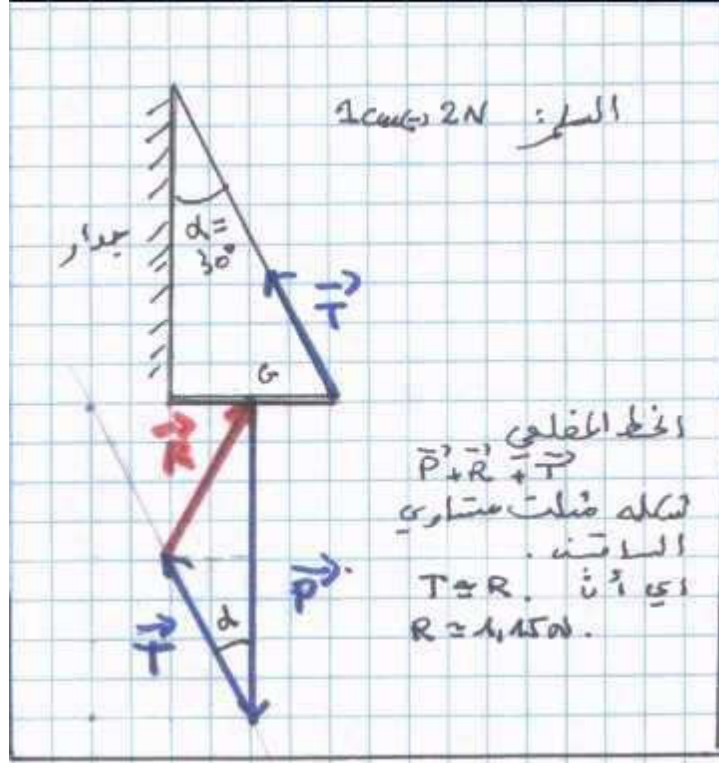 السلم: 1cm↔2N
جدار
α=
30°
T
G
R
الخط المضلعي
P+R+T
شكله مثلث متساوي
الساقين.
P
α
T
أي أن T≃R.
R≃1,15N.